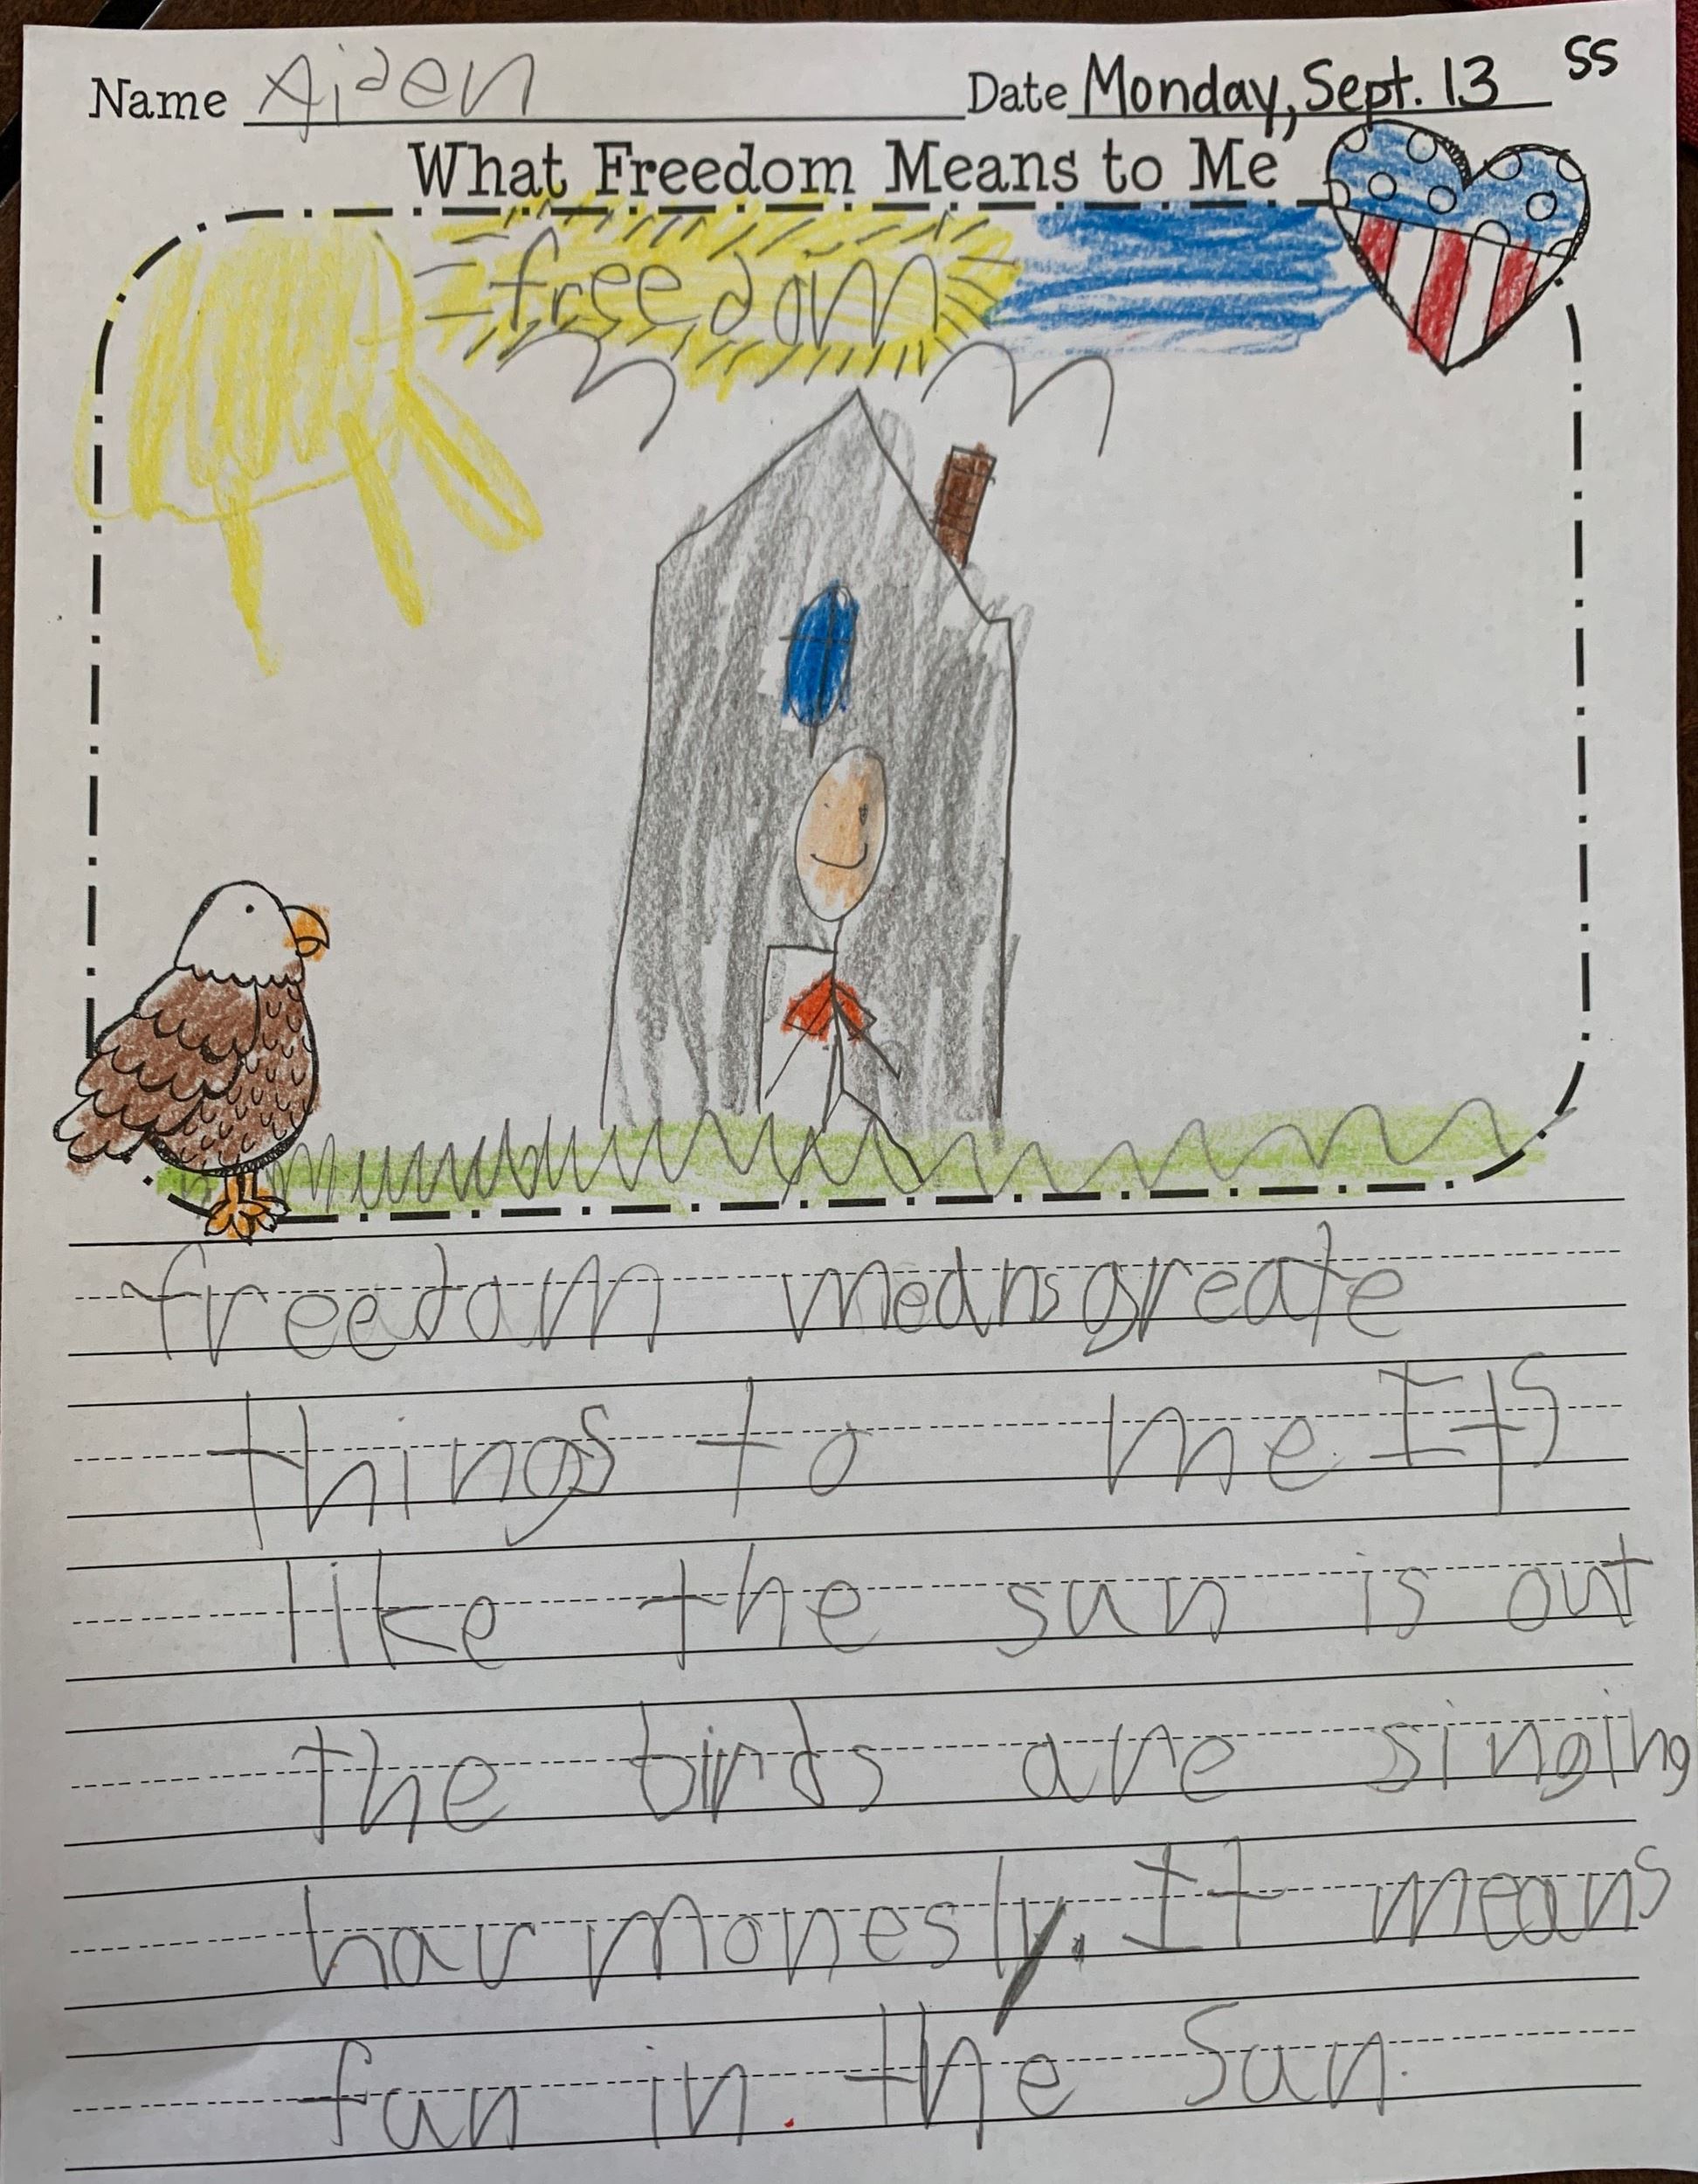 Name Aiden Date Monday, Sept. 13 SS
What Freedom Means to Me
freedom
freedom means greate
things to me. Its
like the sun is out
the birds are singing
harmonesly. It means
fun in the Sun.